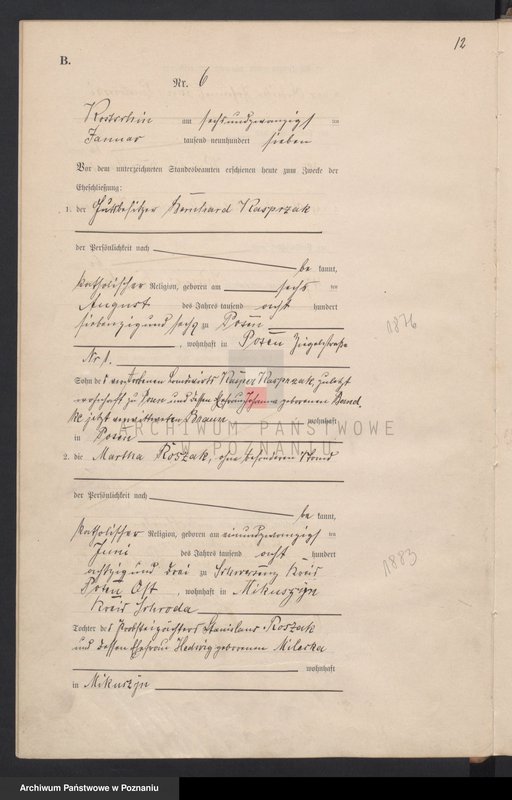 12
B.
Nr. 6
Kostschin am sechsundzwanzigsten
Januar tausend neunhundert sieben
Vor dem unterzeichneten Standesbeamten erschienen heute zum Zwecke der
Eheschließung:
1. der Gutsbesitzer Bernhard Kasprzak
der Persönlichkeit nach
be kannt,
katholischer Religion, geboren am sechs ten
August des Jahres tausend acht hundert
siebenzig und sechs zu Posen
1876
, wohnhaft in Posen Ziegelstraße
Nr. 1.
Sohn des verstorbenen Landwirts Kasper Kasprzak zuletzt
wohnhaft zu Posen und dessen Ehefrau Johanna geborenen
jetzt verwitweten wohnhaft
in Posen
ARCHIWUM PAŃSTWOWE
W POZNANIU
2. die Martha Koszak, ohne besonderen Stand
der Persönlichkeit nach
be kannt,
katholischer Religion, geboren am einundzwanzigsten
Juni des Jahres tausend acht hundert
achtzig und drei zu Schwersenz Kreis
1883
Posen Ost, wohnhaft in Mikuszyn
Kreis Schroda
Tochter des Probsteipächters Stanislaus Koszak
und dessen Ehefrau Hedwig geborenen Milecka
wohnhaft
in Mikuszyn
Archiwum Państwowe w Poznaniu